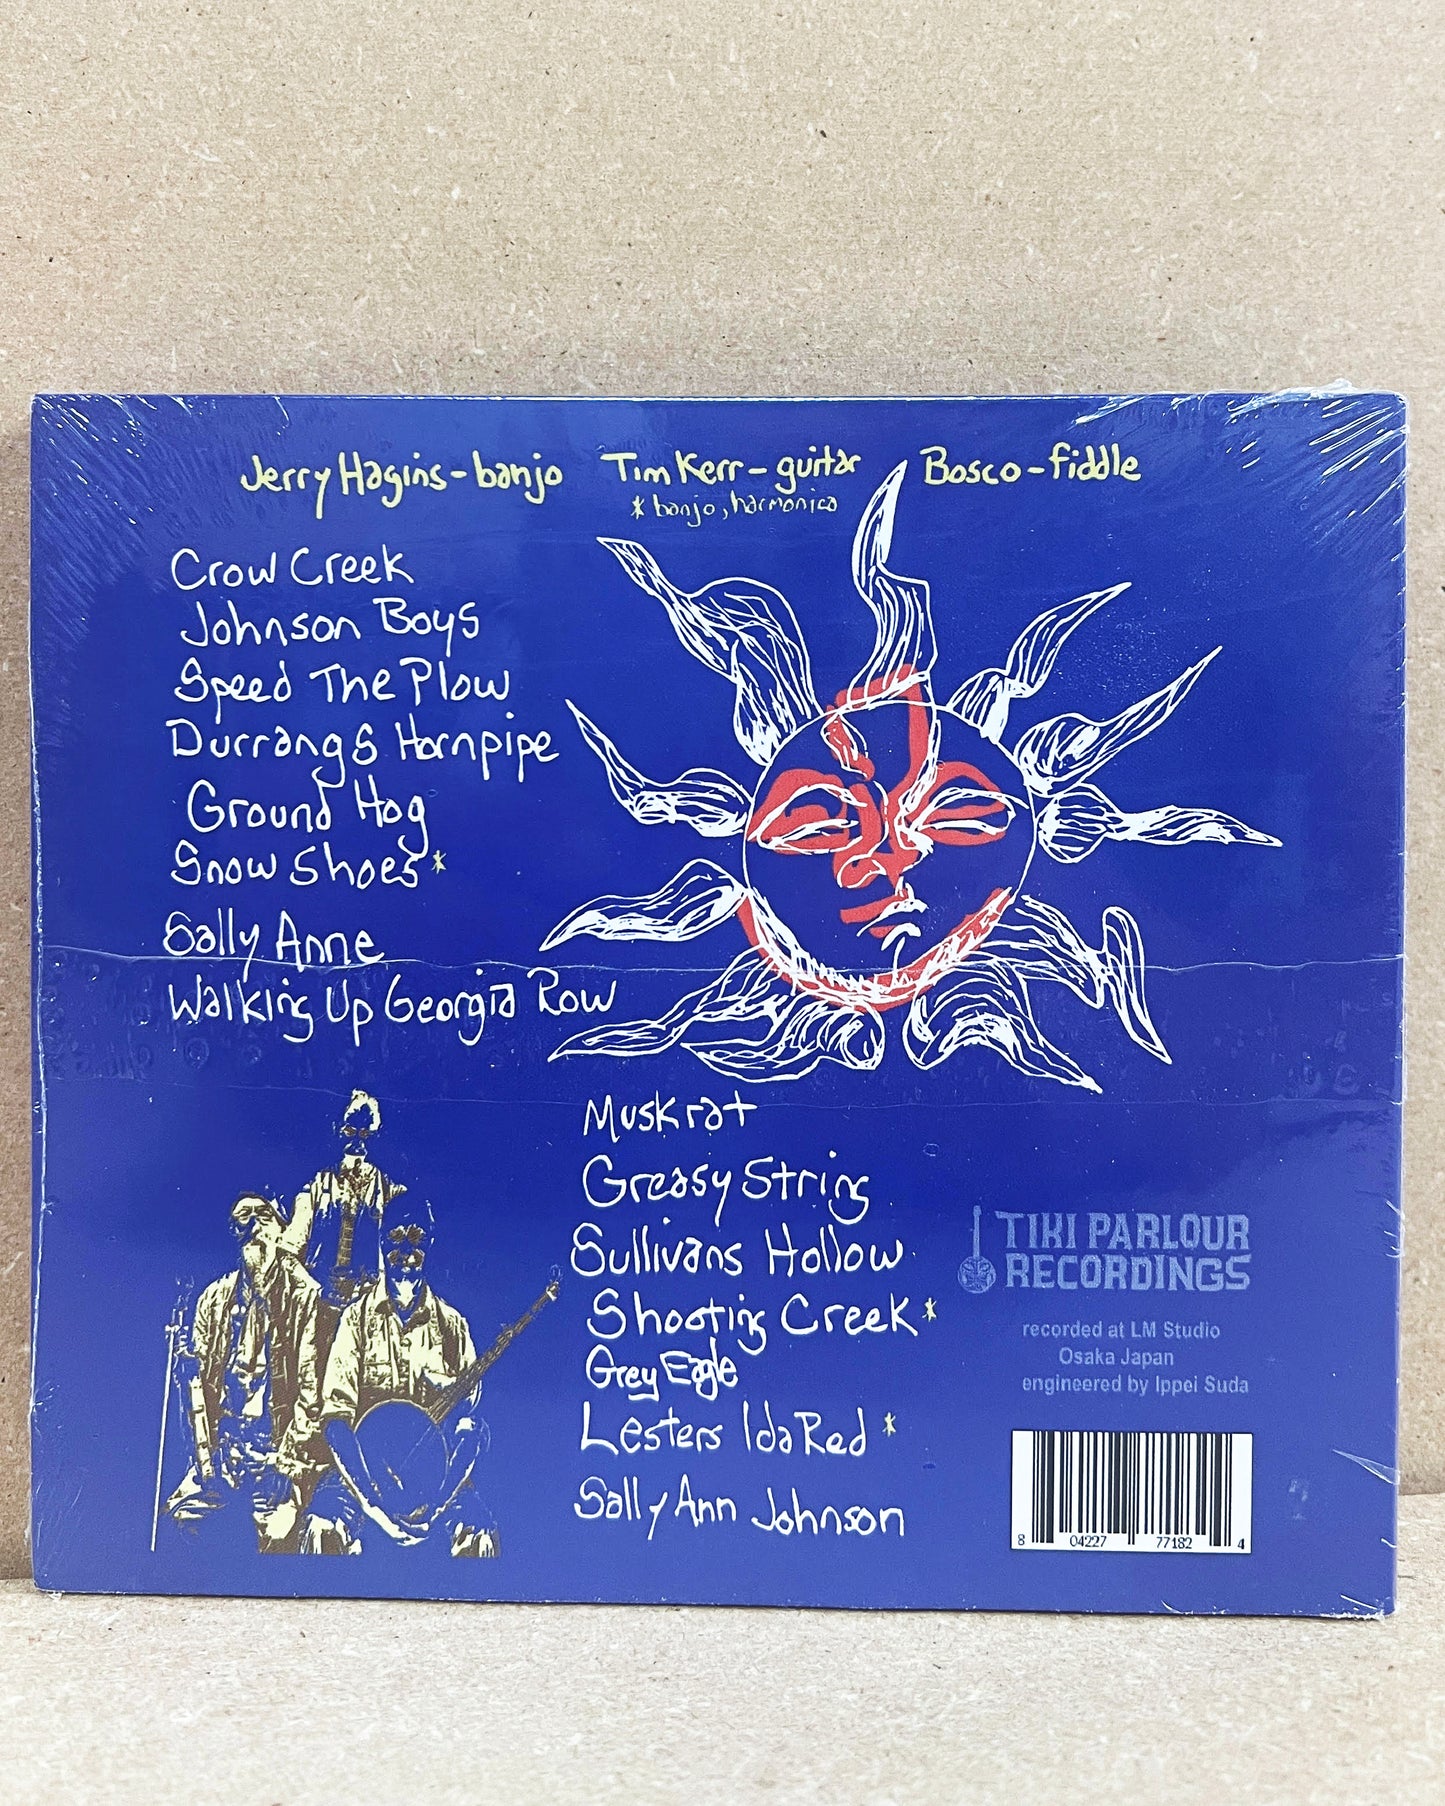 Jerry Hagins-banjo Tim Kerr-guitar Bosco-fiddle
* banjo, harmonica
Crow Creek
Johnson Boys
Speed The Plow
Durrangs Hornpipe
Ground Hog
Snow Shoes*
Sally Anne
Walking Up Georgia Row
Muskrat
Greasy String
Sullivans Hollow
Shooting Creek*
Grey Eagle
Lesters Ida Red*
Sally Ann Johnson
TIKI PARLOUR
RECORDINGS
recorded at LM Studio
Osaka Japan
engineered by Ippei Suda
8 04227 77182 4